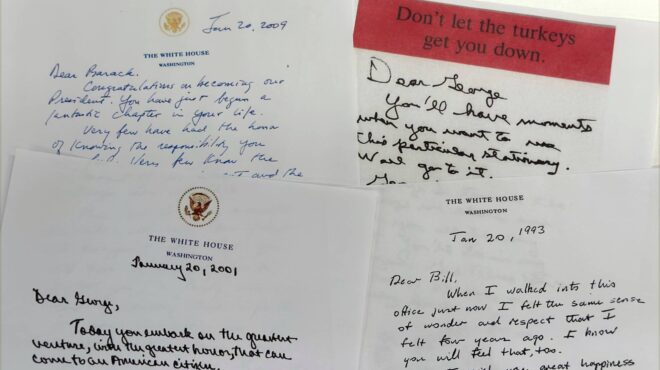 Jan 20, 2009
THE WHITE HOUSE
WASHINGTON
Dear Barack.
Congratulations on becoming our
President. You have just begun a
fantastic chapter in your life.
Very few have had the honor
of knowing the responsibility you
Very few know the
and the
Don't let the turkeys
get you down.
Dear George
You'll have moments
when you want to use
this particular stationary.
Well go to it.
THE WHITE HOUSE
WASHINGTON
January 20, 2001
Dear George,
Today you embark on the greatest
venture, with the greatest honor, that can
come to an American citizen.
THE WHITE HOUSE
WASHINGTON
Jan 20, 1993
Dear Bill,
When I walked into this
office just now I felt the same sense
of wonder and respect that I
felt four years ago. I know
you will feel that, too.
great happiness